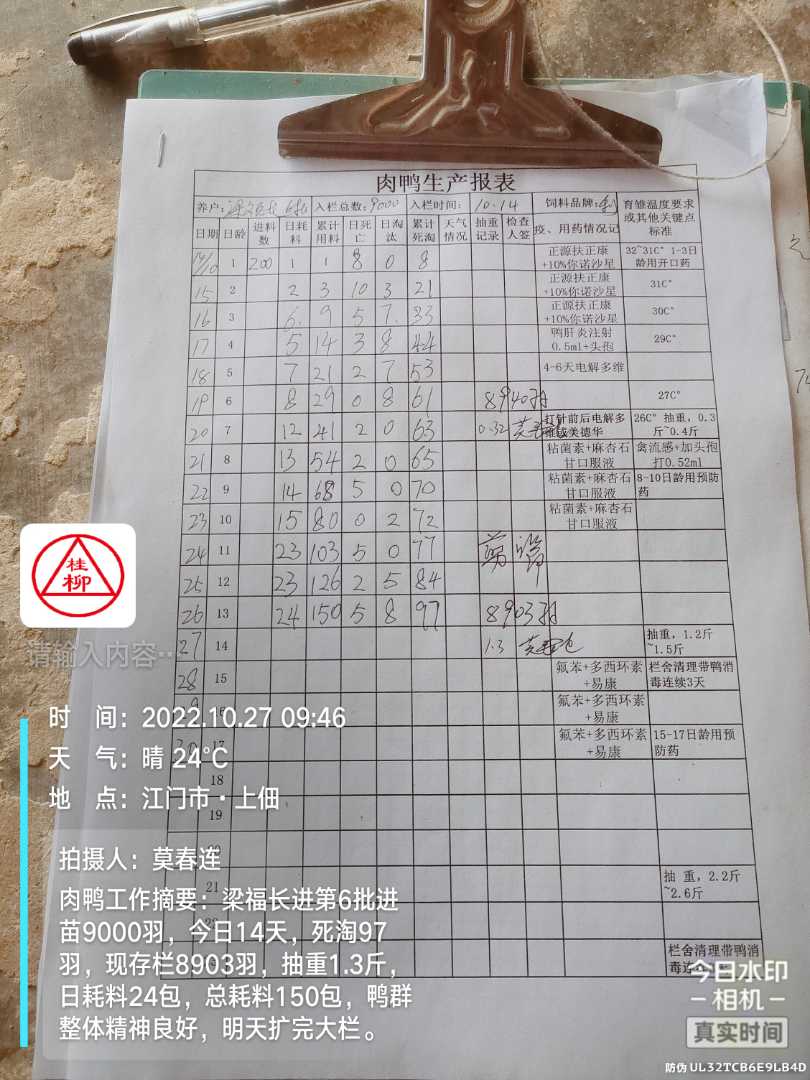 肉鸭生产报表
养户: 梁福长 6批 入栏总数: 9000 入栏时间: 10.14 饲料品牌: 育雏温度要求或其他关键点标准
日期 日龄 进料数 日耗料 累计用料 日死亡 日淘汰 累计死淘 天气情况 抽重记录 检查人签 疫、用药情况记
14/10 1 200 1 1 8 0 8 正源扶正康+10%你诺沙星 32~31C° 1-3日龄用开口药
15 2 2 3 10 3 21 正源扶正康+10%你诺沙星 31C°
16 3 6 9 5 7 33 正源扶正康+10%你诺沙星 30C°
17 4 5 14 3 8 44 鸭肝炎注射0.5ml+头孢 29C°
18 5 7 21 2 7 53 4-6天电解多维
19 6 8 29 0 8 61 8940羽 27C°
20 7 12 41 2 0 63 0.32 打针前后电解多维或美德华 26C° 抽重,0.3斤~0.4斤
21 8 13 54 2 0 65 粘菌素+麻杏石甘口服液 禽流感+加头孢打0.52ml
22 9 14 68 5 0 70 粘菌素+麻杏石甘口服液 8-10日龄用预防药
23 10 15 80 0 2 72 粘菌素+麻杏石甘口服液
24 11 23 103 5 0 77
25 12 23 126 2 5 84
26 13 24 150 5 8 97 8903羽
27 14 1.3 抽重,1.2斤~1.5斤
28 15 氟苯+多西环素+易康 栏舍清理带鸭消毒连续3天
氟苯+多西环素+易康
30 17 氟苯+多西环素+易康 15-17日龄用预防药
18
19
21 抽 重,2.2斤~2.6斤
栏舍清理带鸭消
桂柳
请输入内容…
时 间: 2022.10.27 09:46
天 气: 晴 24℃
地 点: 江门市·上佃
拍摄人: 莫春连
肉鸭工作摘要: 梁福长进第6批进
苗9000羽,今日14天,死淘97
羽,现存栏8903羽,抽重1.3斤,
日耗料24包,总耗料150包,鸭群
整体精神良好,明天扩完大栏。
今日水印
相机
真实时间
防伪 UL32TCB6E9LB4D